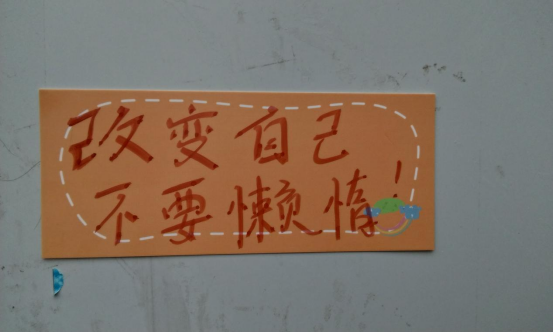 改变自己
不要懒惰！